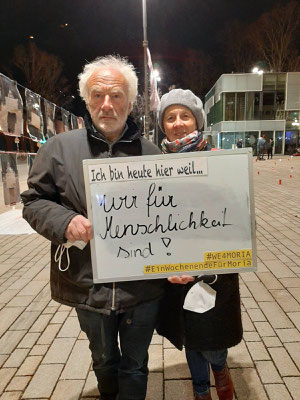 Ich bin heute hier weil...
wir für
Menschlichkeit
sind!
#WE4MORIA
#EinWochenendeFürMoria